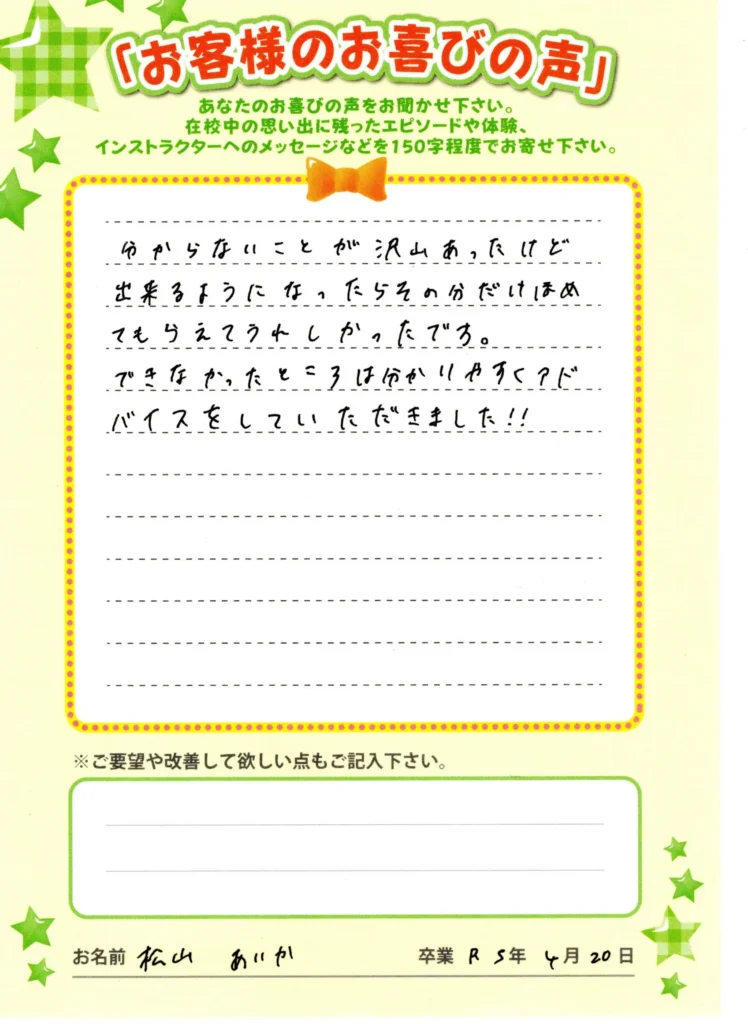 「お客様のお喜びの声」
あなたのお喜びの声をお聞かせ下さい。
在校中の思い出に残ったエピソードや体験、
インストラクターへのメッセージなどを150字程度でお寄せ下さい。
分からないことが沢山あったけど
出来るようになったらその分だけほめ
てもらえてうれしかったです。
できなかったところは分かりやすくアド
バイスをしていただきました!!
※ご要望や改善して欲しい点もご記入下さい。
お名前 松山 あいか 卒業 R5年 4月20日